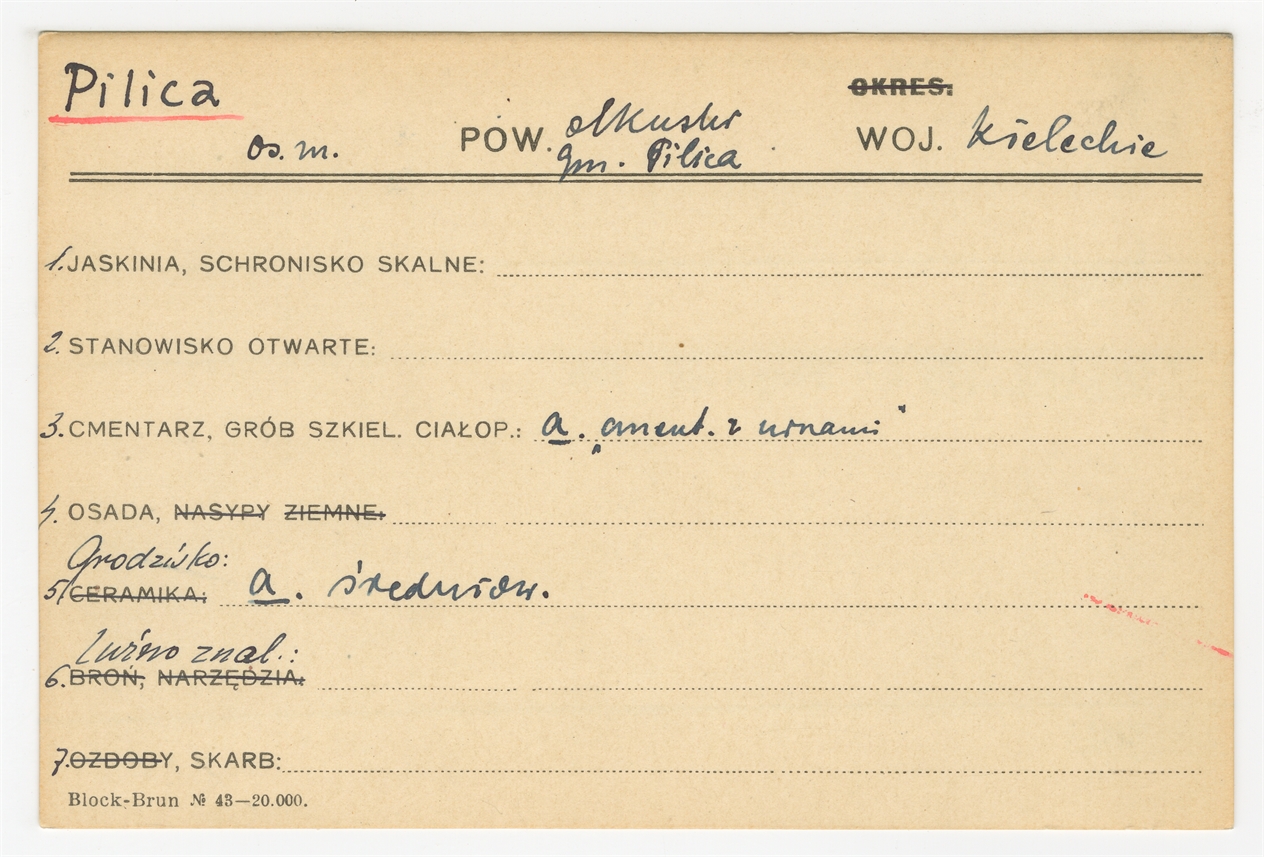 Pilica
OKRES:
os. m. POW. olkuski WOJ. kieleckie
gm. Pilica
1. JASKINIA, SCHRONISKO SKALNE:
2. STANOWISKO OTWARTE:
3. CMENTARZ, GRÓB SZKIEL. CIAŁOP.: a. „cment. z urnami"
4. OSADA, NASYPY ZIEMNE:
Grodzisko:
5. CERAMIKA: a. średniow.
Luźno znal.:
6. BROŃ, NARZĘDZIA:
7. OZDOBY, SKARB:
Block-Brun № 43—20.000.